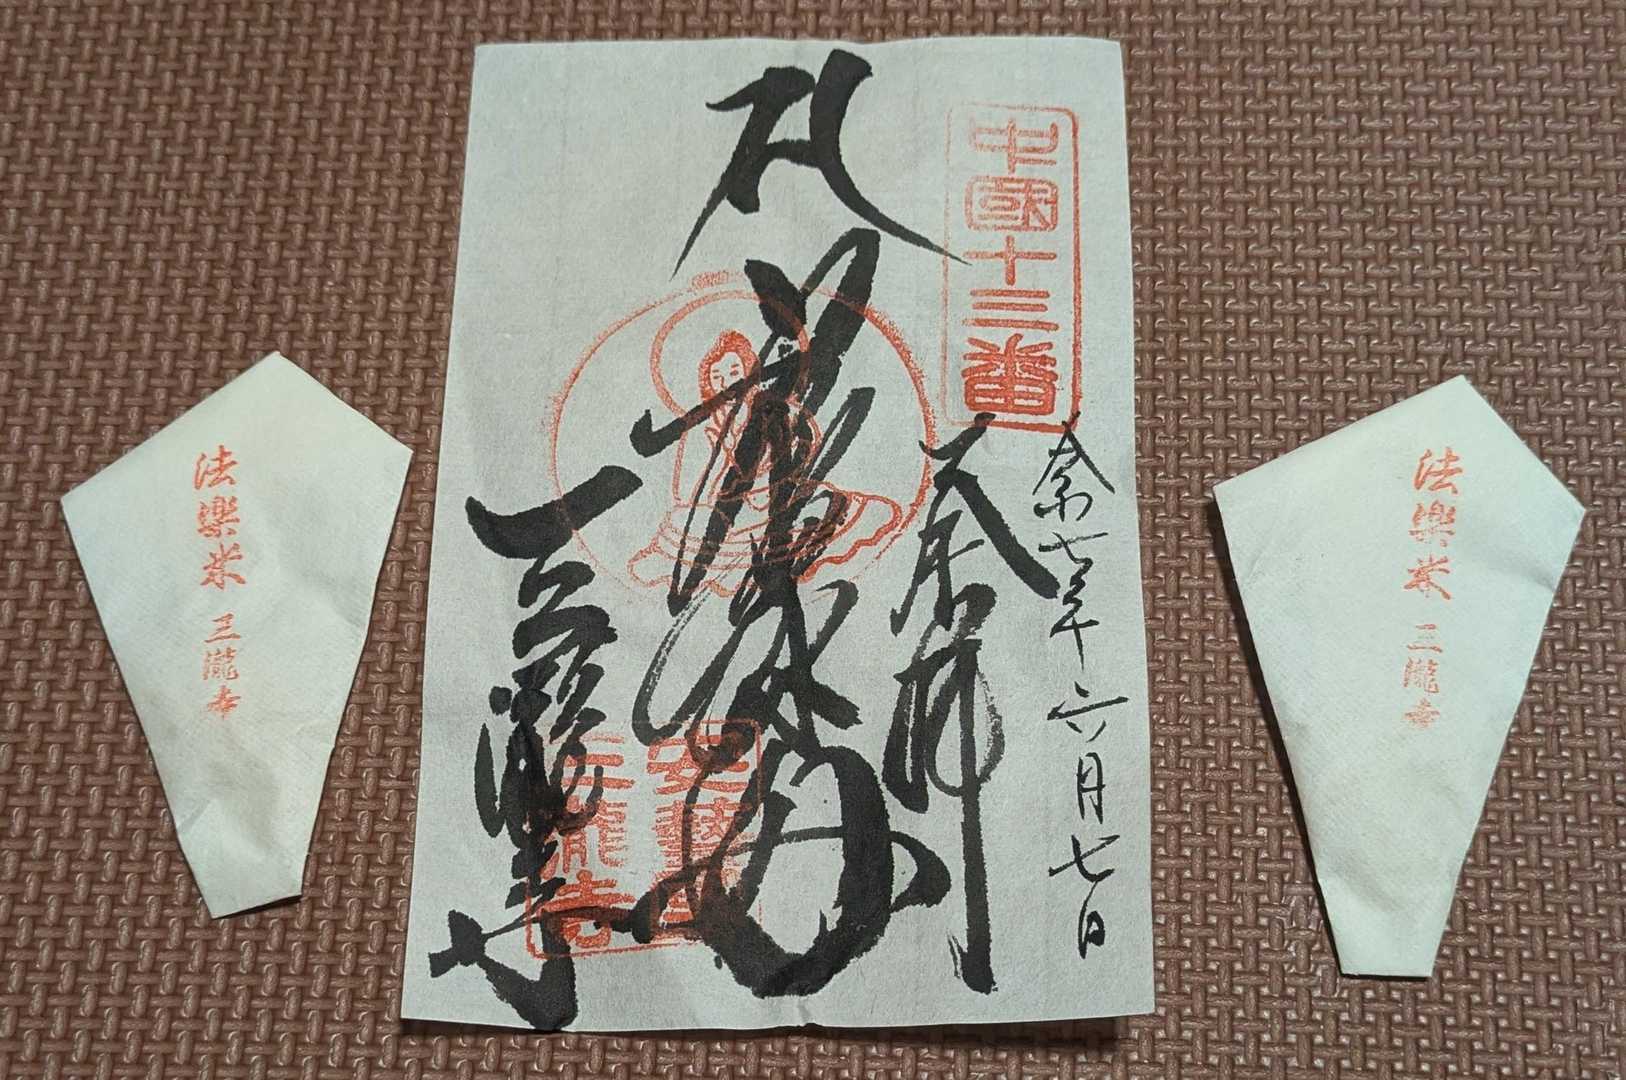 中國十三番
奉拝
令和七年六月七日
三瀧寺
安藝國
三瀧寺
法樂米 三瀧寺
法樂米 三瀧寺